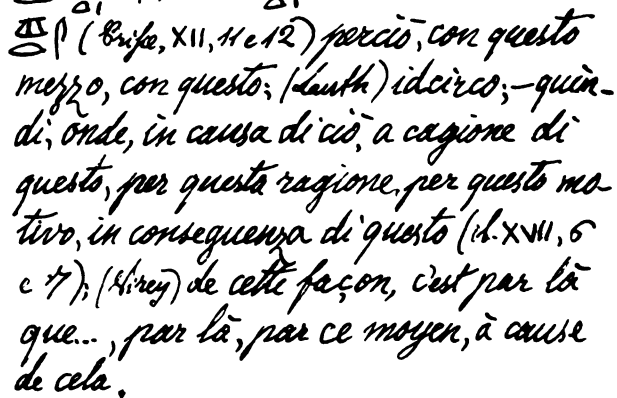 ( Prisse, XII, 11 e 12 ) perciò, con questo
mezzo, con questo; (Lauth) idcirco; – quin-
di, onde, in causa di ciò, a cagione di
questo, per questa ragione, per questo mo-
tivo, in conseguenza di questo (d. XVII, 6
e 7); (Virey) de cette façon, c'est par là
que..., par là, par ce moyen, à cause
de cela.